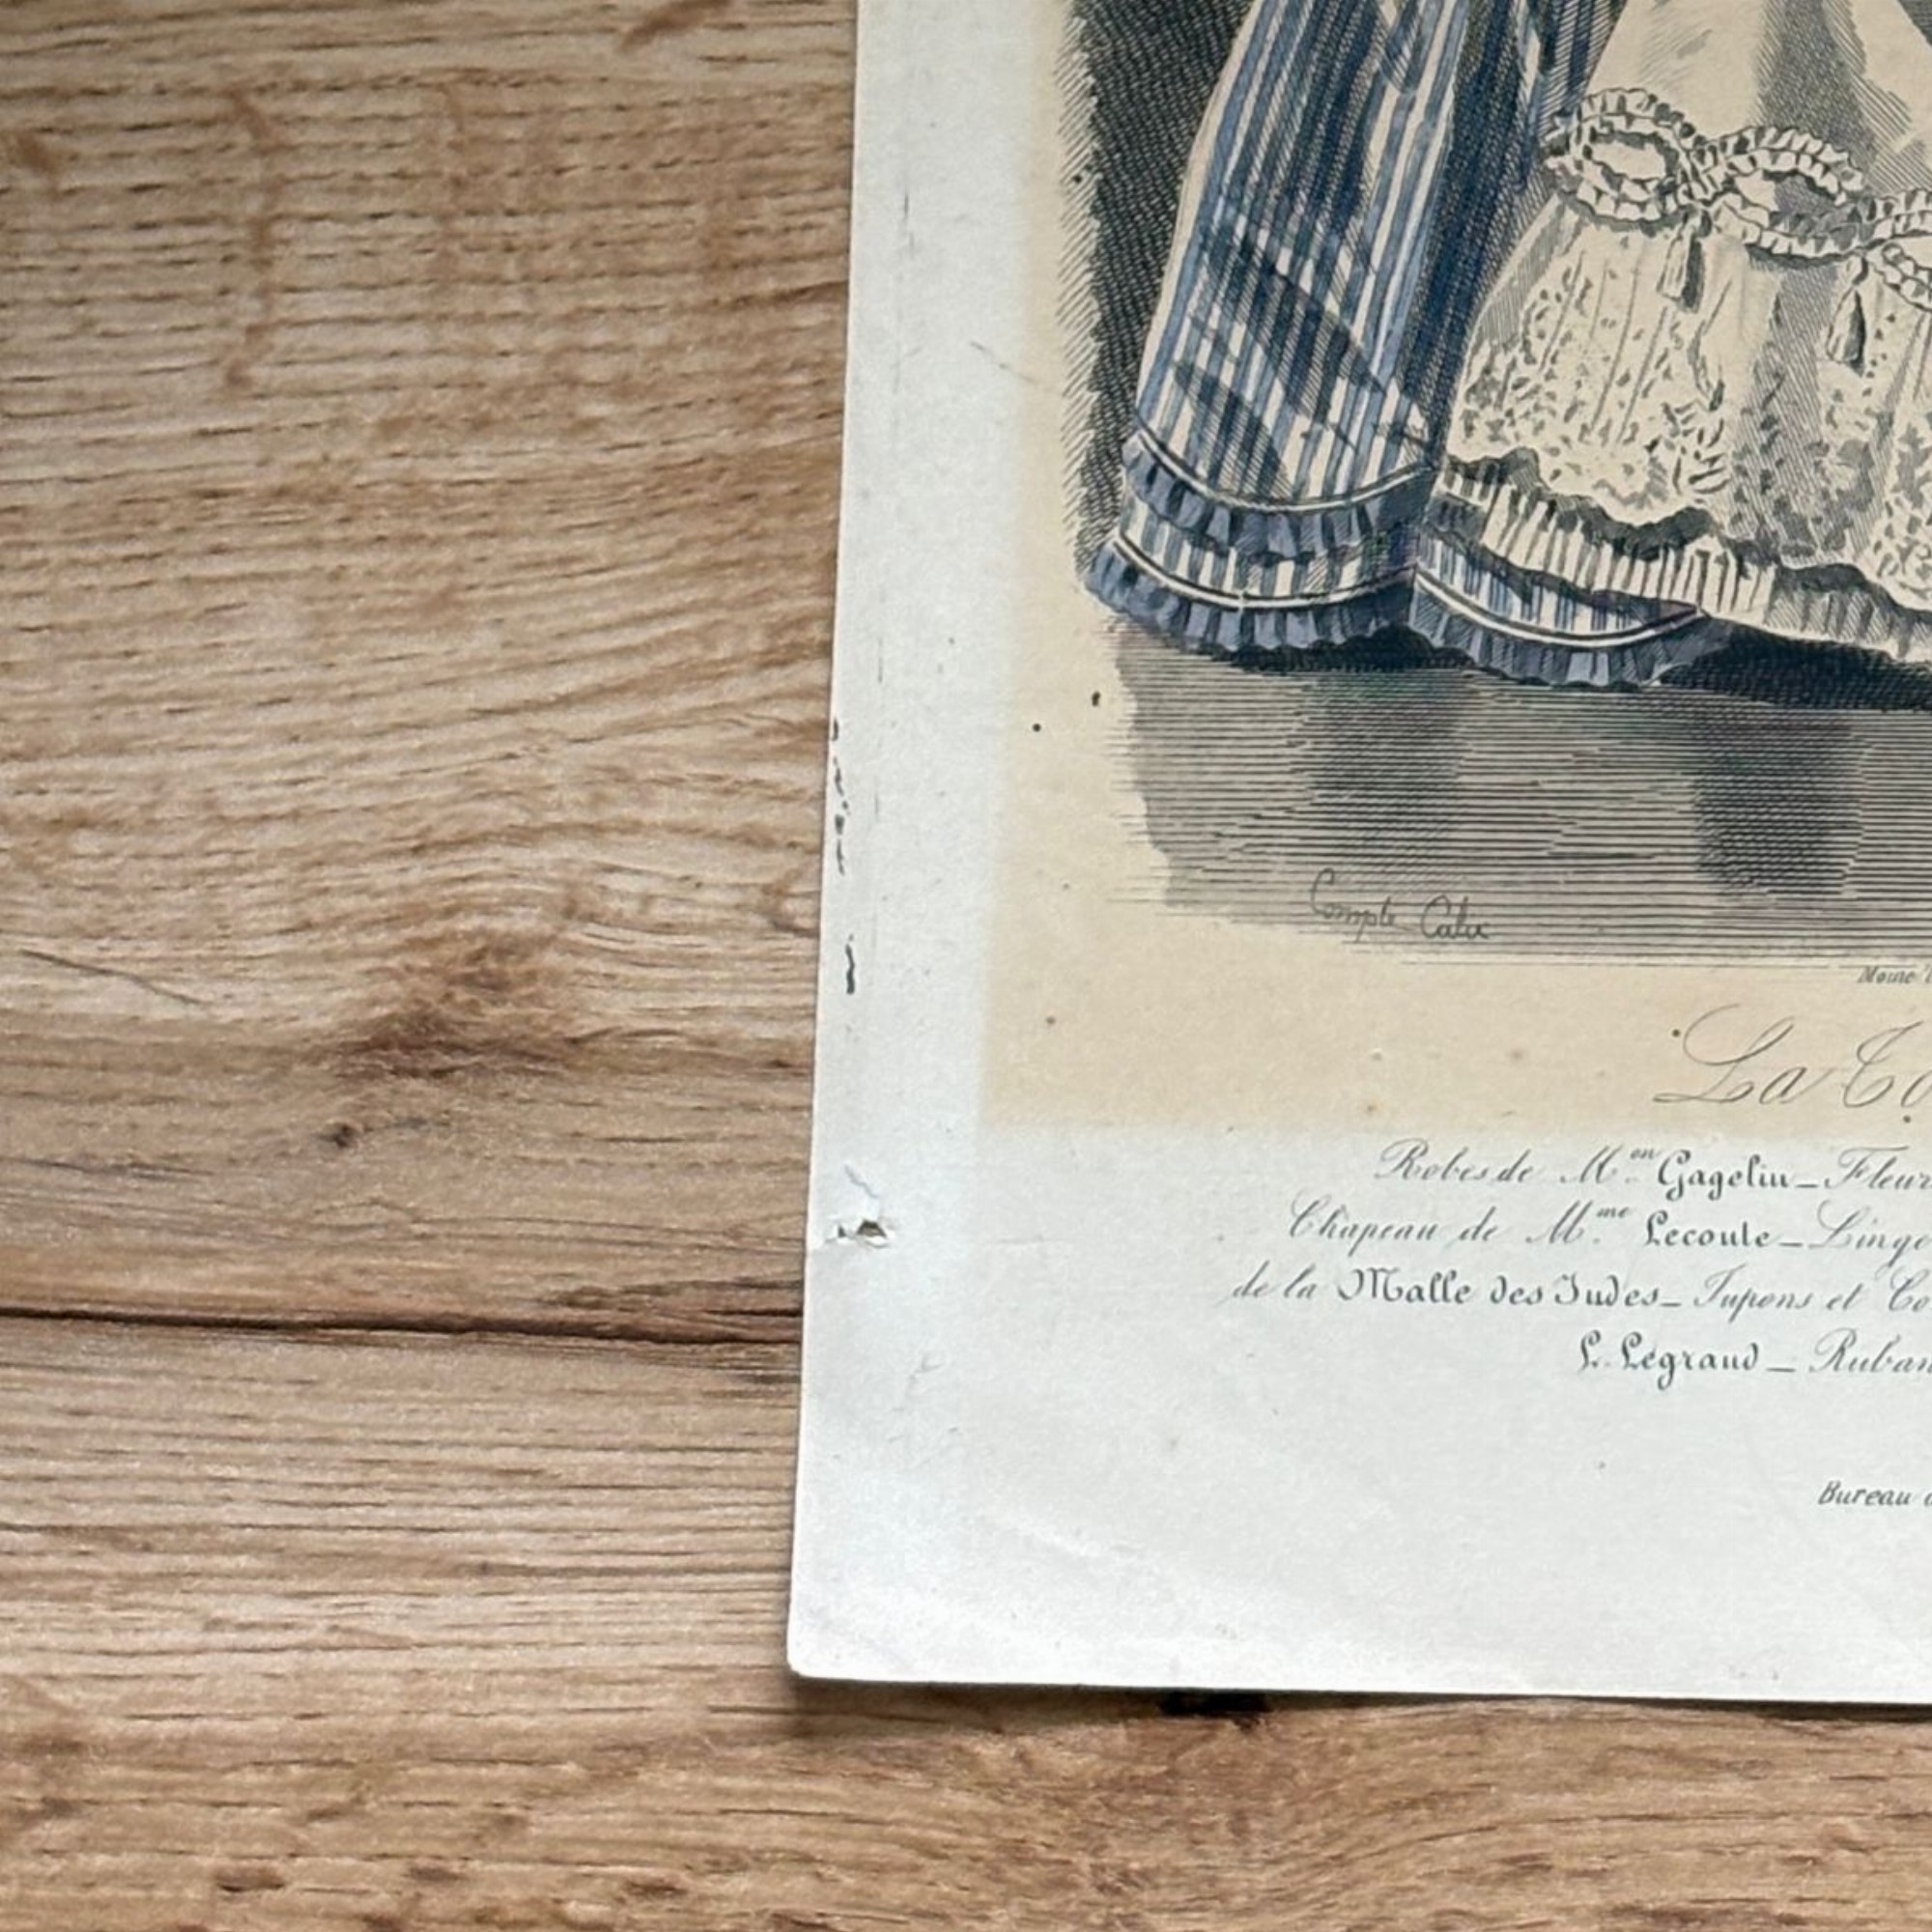 Compte Calix
Moine
La
Robes de M.on Gagelin _ Fleurs
Chapeau de M.me Lecoute _ Linge
de la Malle des Indes _ Jupons et Co
L. Legrand _ Ruban
Bureau d